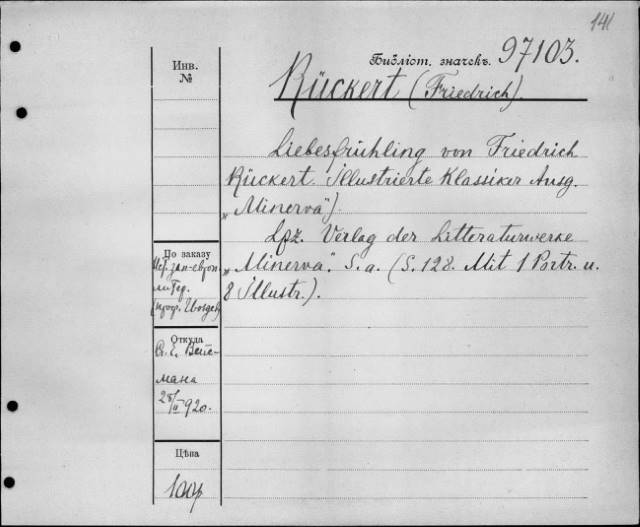 141
Библіот. значекъ. 97103.
Инв.
№
Rückert (Friedrich).
Liebesfrühling von Friedrich
Rückert. Illustrierte Klassiker Ausg.
„Minerva").
Lpz. Verlag der Litteraturwerke
„Minerva". S. a. (S. 128. Mit 1 Portr. u.
8 Illustr.).
По заказу
зап-европ
литер.
(проф.
Откуда
Е. Вейс-
мана
28/II 920.
Цѣна
100р